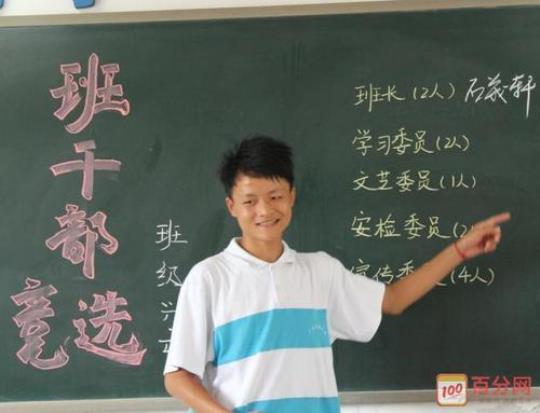 班干部竞选
班级兴
班长(2人)
学习委员(2人)
文艺委员(1人)
安检委员(2
宣传委员(4人)
100 百分网